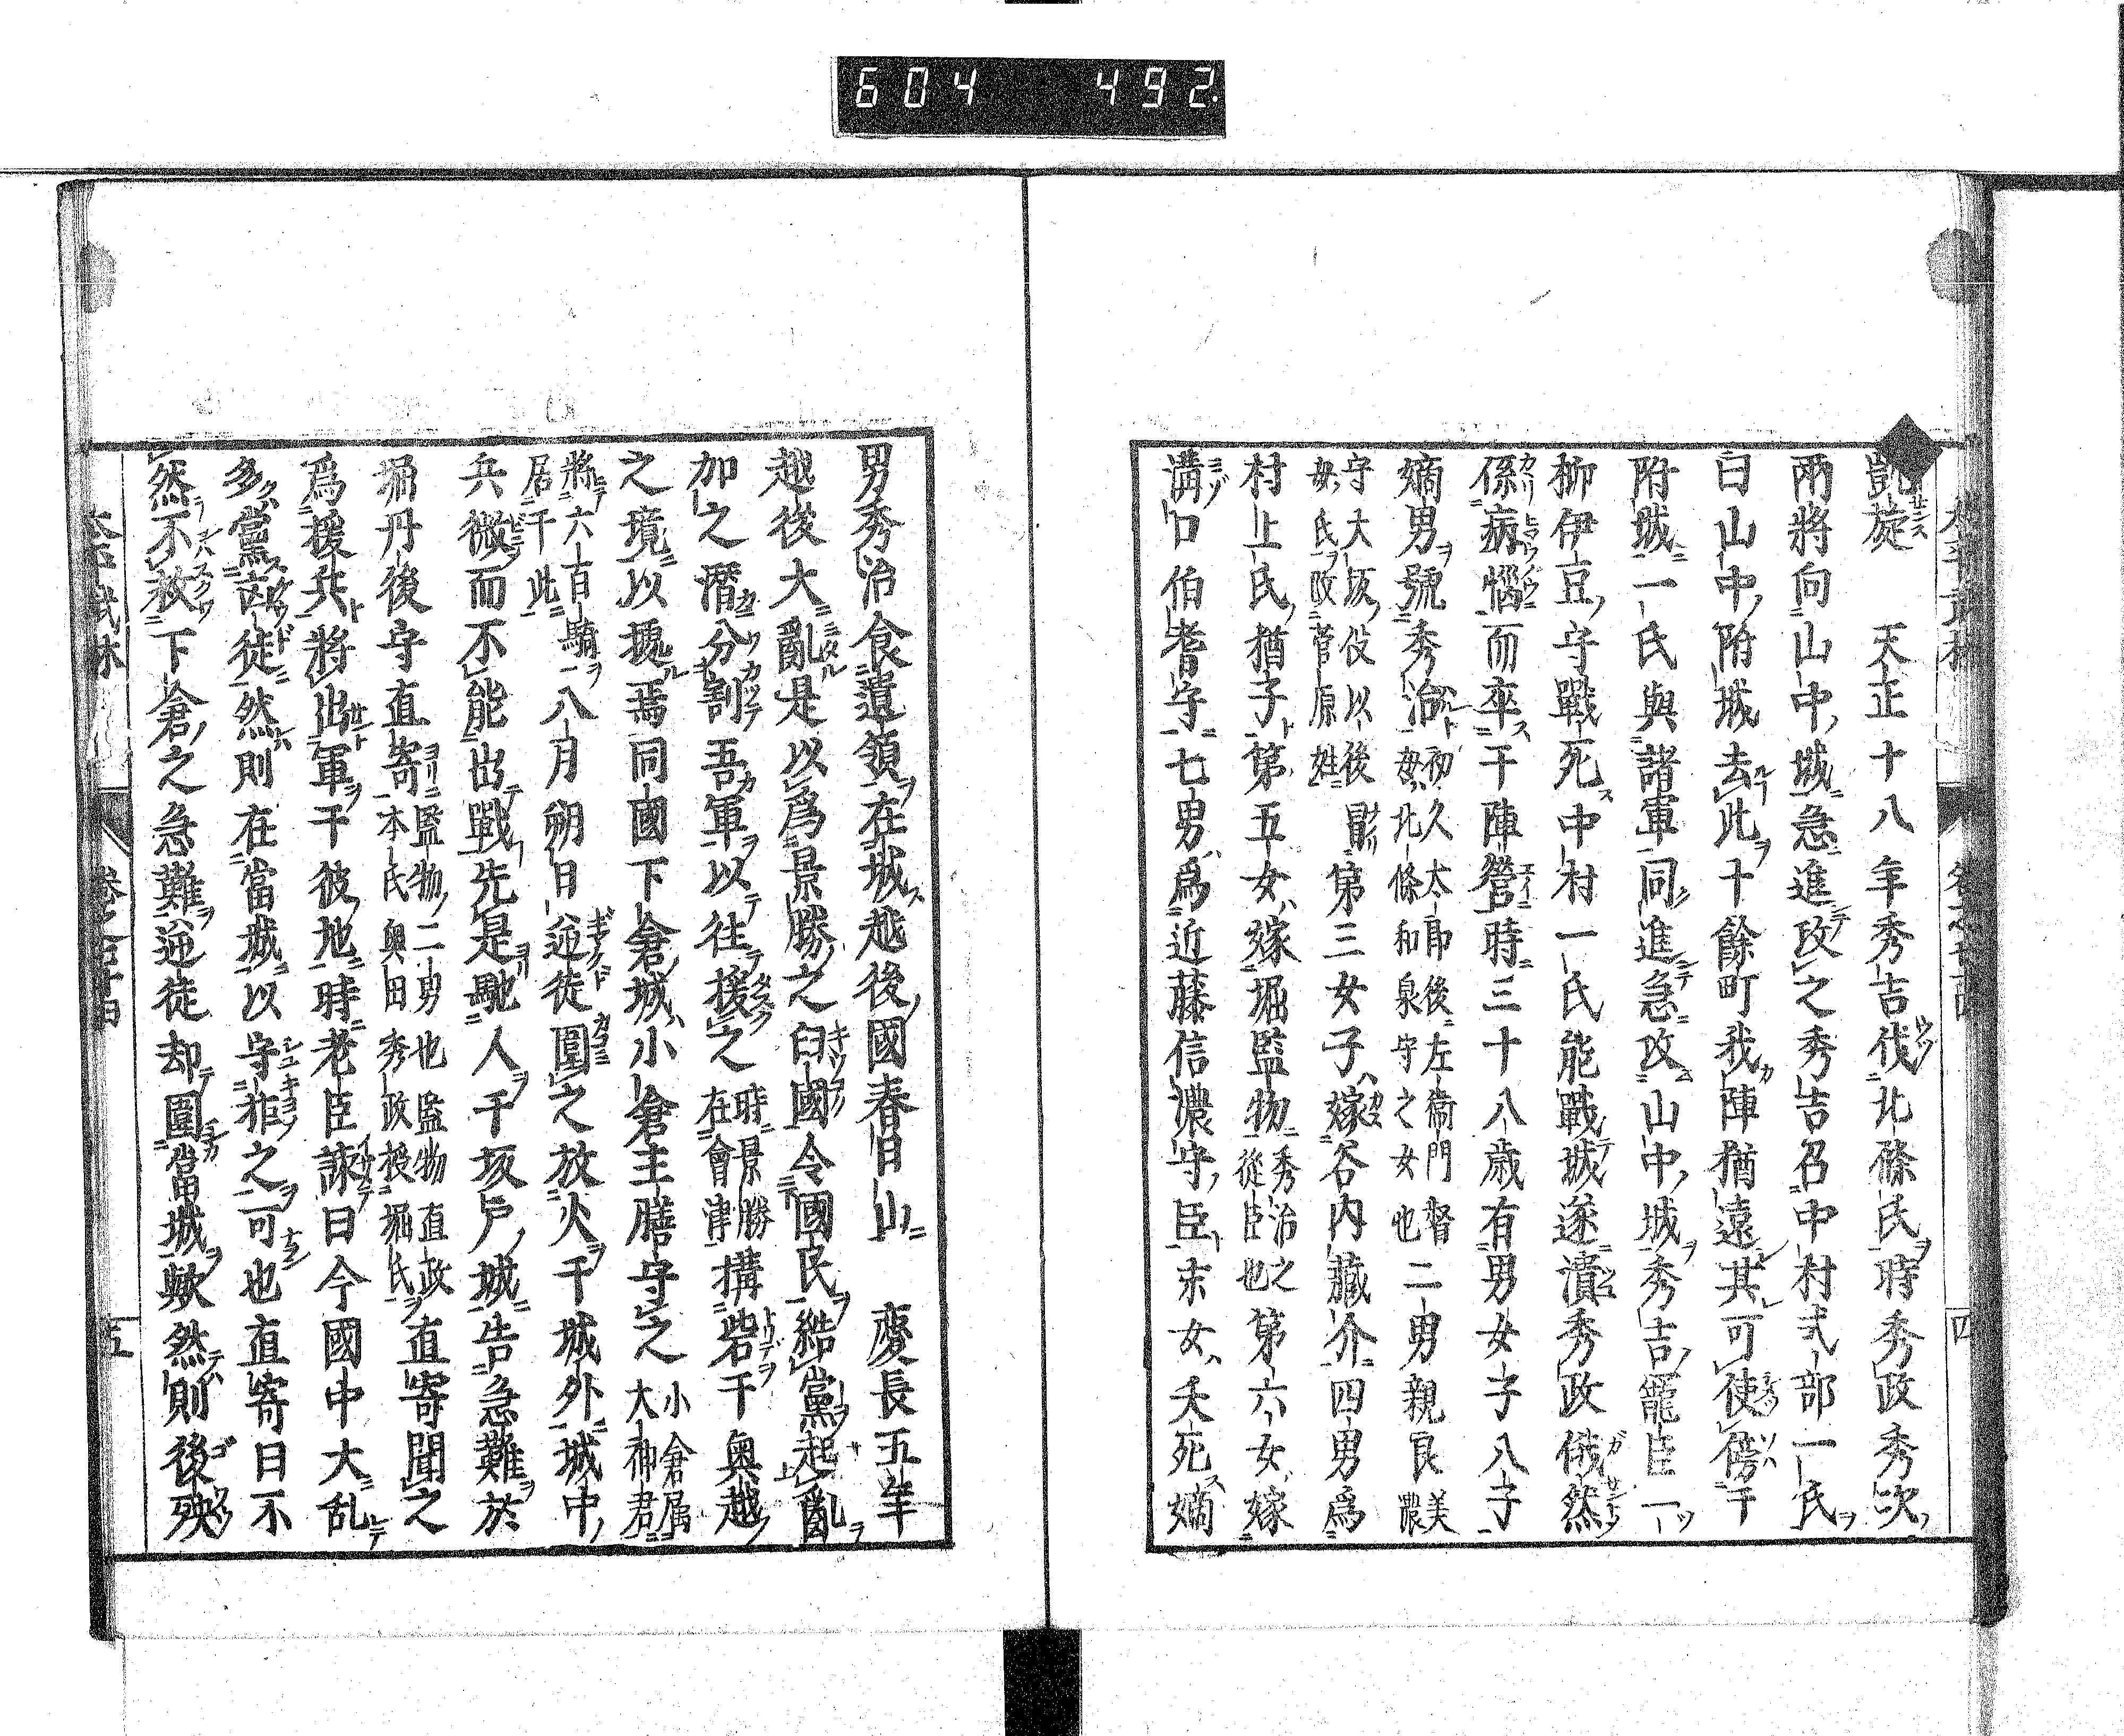 604 492
凱旋　天正十八年秀吉伐北條氏時秀政秀次
兩將向山中城急進攻之秀吉召中村式部一氏
曰山中附城去此十餘町我陣猶遠其可使傍于
附城一氏與諸軍同進急攻山中城秀吉寵臣一
柳伊豆守戰死中村一氏能戰城遂潰秀政俄然
係病惱而卒于陣營時三十八歳有男女子八子
嫡男號秀治初久太郎後左衞門督
母北條和泉守之女也二男親良美
濃
守大坂役以後
母氏改菅原姓屬第三女子嫁谷内藏介四男爲
村上氏猶子第五女嫁堀監物秀治之
從臣也第六女嫁
溝口伯耆守七男爲近藤信濃守臣末女夭死嫡
四
男秀治食遺領在城越後國春日山　慶長五年
越後大亂是以爲景勝之旧國令國民結黨起亂
加之潛分割吾軍以往援之時景勝
在會津構砦于奥越
之境以據焉同國下倉城小倉主膳守之小倉属
大神君
將六百騎
居于此八月朔日逆徒圍之放火于城外城中
兵微而不能出戰先是馳人于坂戸城告急難於
堀丹後守直寄監物二男也監物直政
本氏奥田秀政授堀氏直寄聞之
爲援兵將出軍于彼地時老臣諫曰今國中大乱
多黨徒然則在當城以守拒之可也直寄曰不
然不救下倉之急難逆徒却圍當城歟然則後殃
五